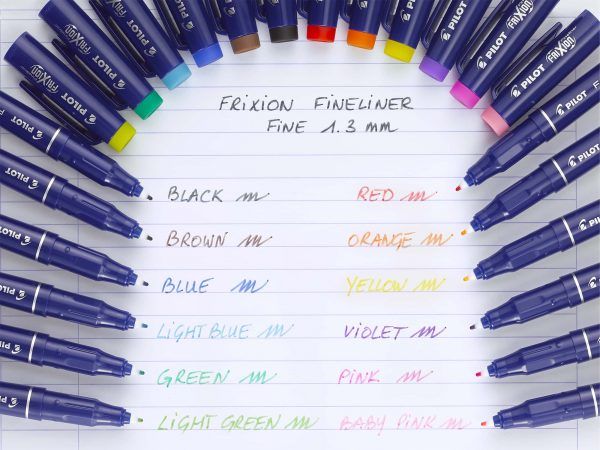 FRIXION FINELINER
FINE 1.3 mm
BLACK m
BROWN m
BLUE m
LIGHT BLUE m
GREEN m
LIGHT GREEN m
RED m
ORANGE m
YELLOW m
VIOLET m
PINK m
BABY PINK m
PILOT
FRIXION
PILOT
FRIXION
PILOT
PILOT
PILOT
PILOT
PILOT
FRIXION
PILOT
FRIXION
PILOT
PILOT
PILOT
PILOT
PILOT
PILOT
PILOT
PILOT